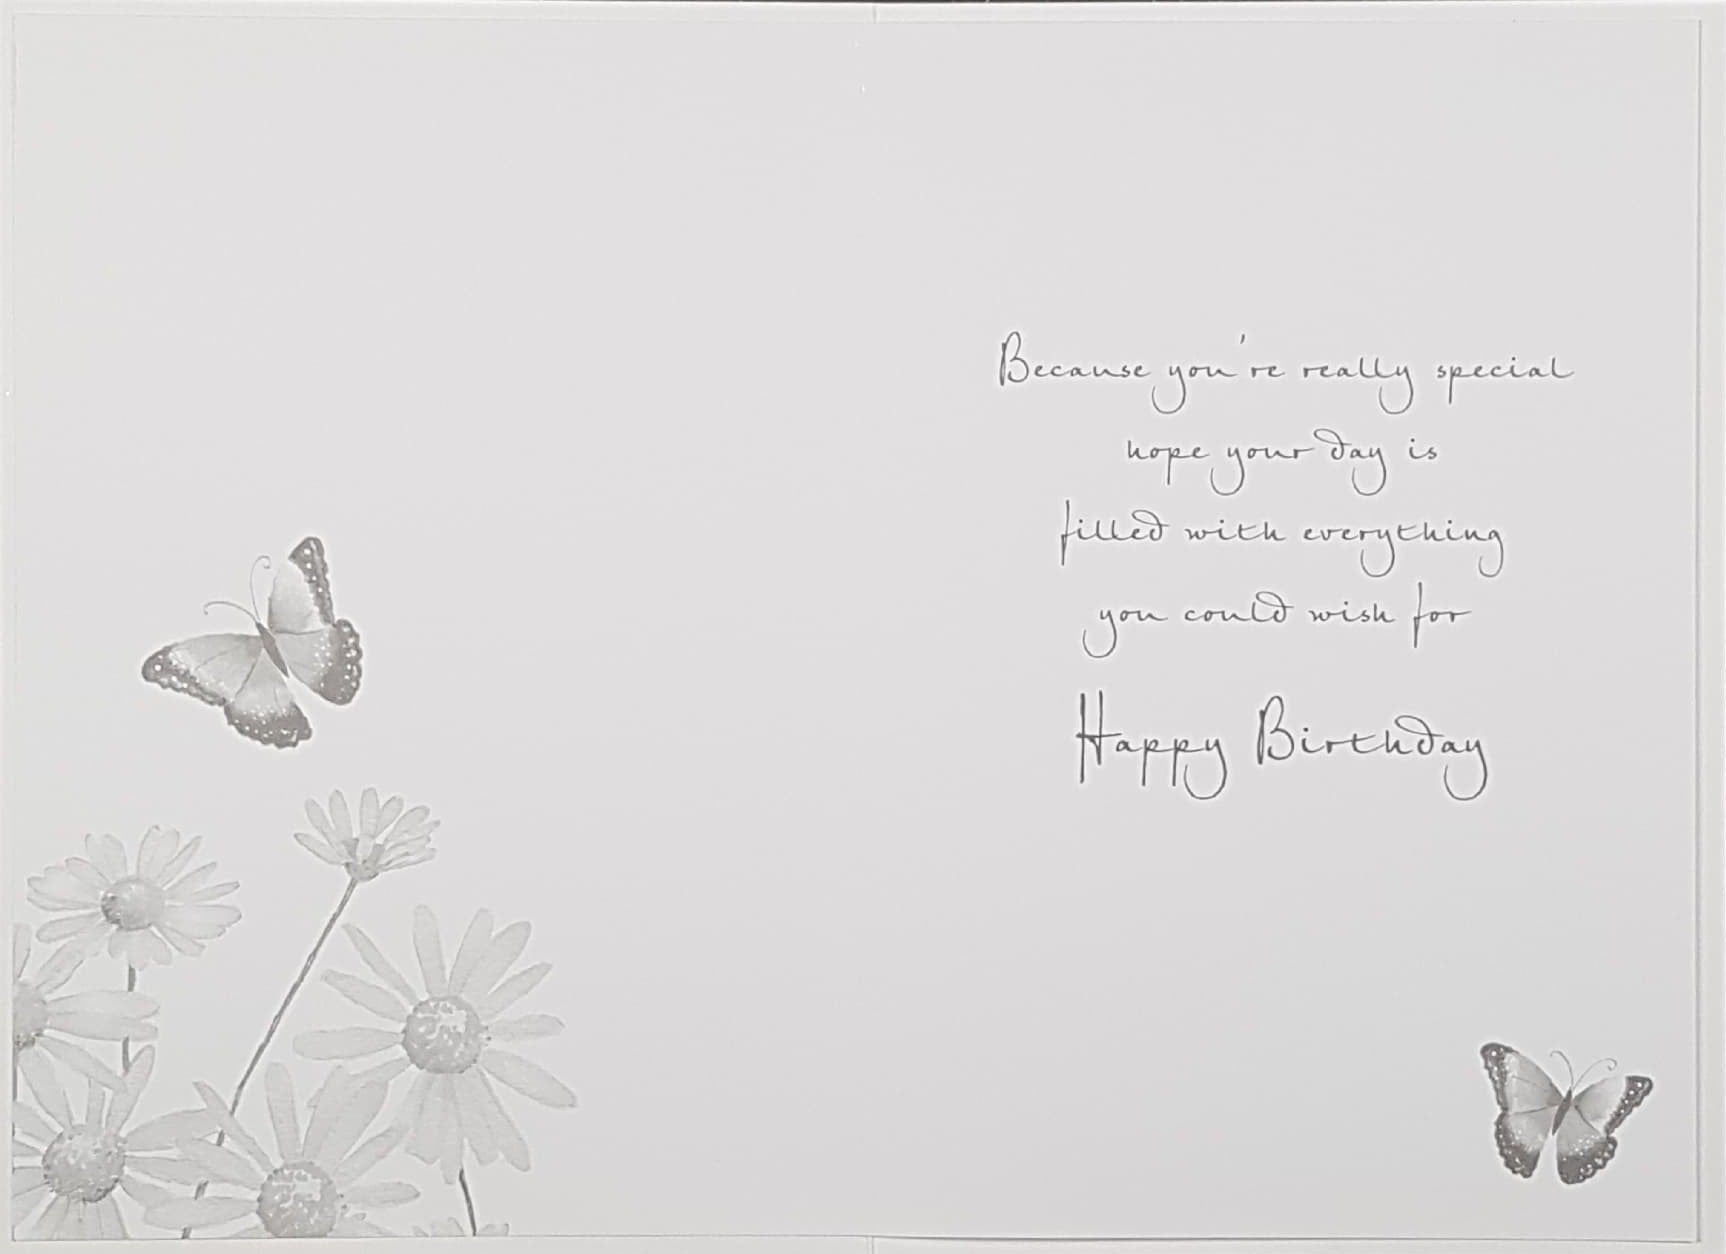 Because you're really special
hope your day is
filled with everything
you could wish for
Happy Birthday